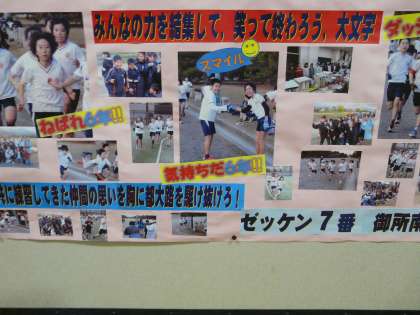 みんなの力を結集して，笑って終わろう，大文字
スマイル
ねばれ6年!!
気持ちだ6年!!
に練習してきた仲間の思いを胸に都大路を駆け抜けろ！
ゼッケン７番　御所南